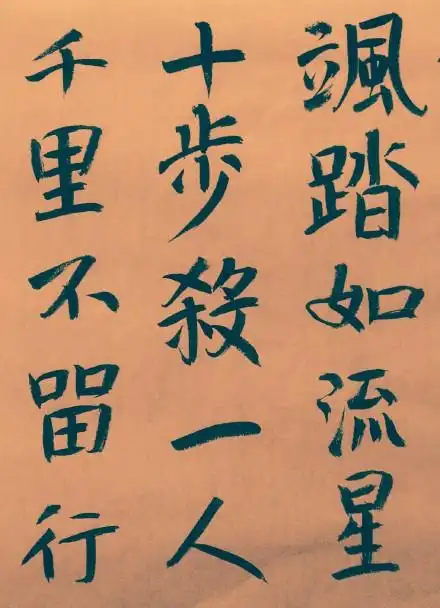 颯踏如流星
十步殺一人
千里不留行